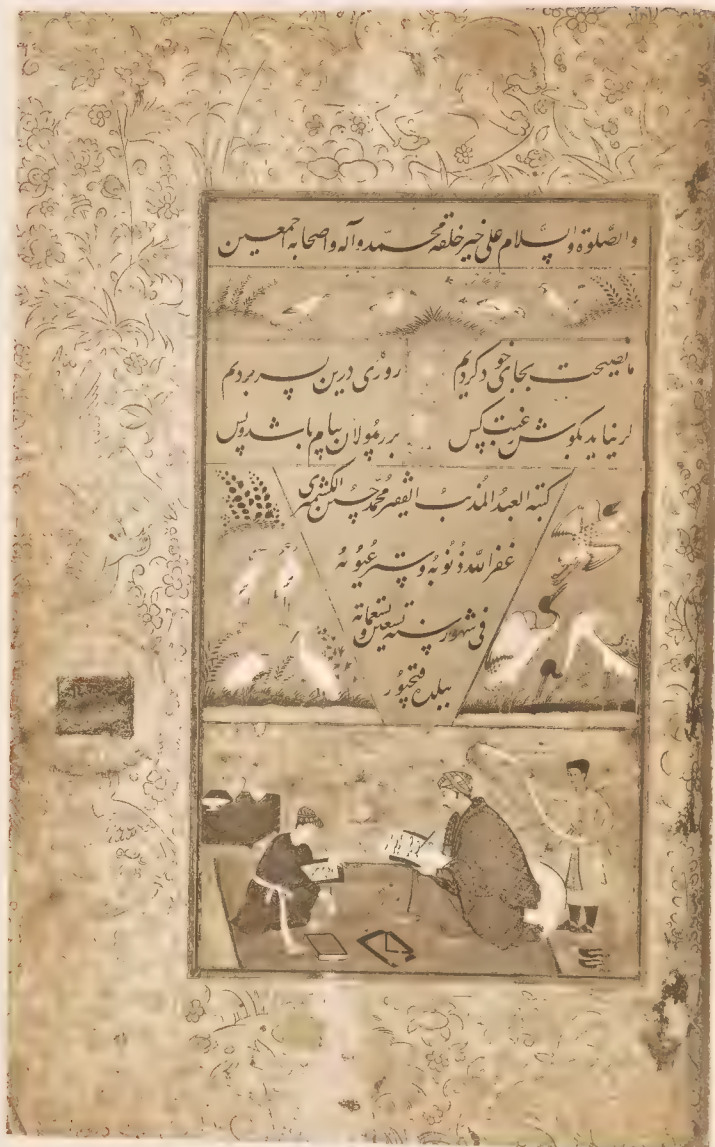 والصّلوة والسّلام علی خیر خلقه محمّد وآله واصحابه اجمعین
ما نصیحت بجای خود کردیم روزی درین بسر بردیم
گر نیاید بگوش رغبت کس بر رسولان پیام باشد و بس
کتبه العبدُ المُذنبُ الفقیر محمّد حسین الکشمیری
غفر اللّه ذُنوبهُ و ستر عُیوبهُ
فی شهور سنه تسعین وتسعمائة
ببلده فتحپُور